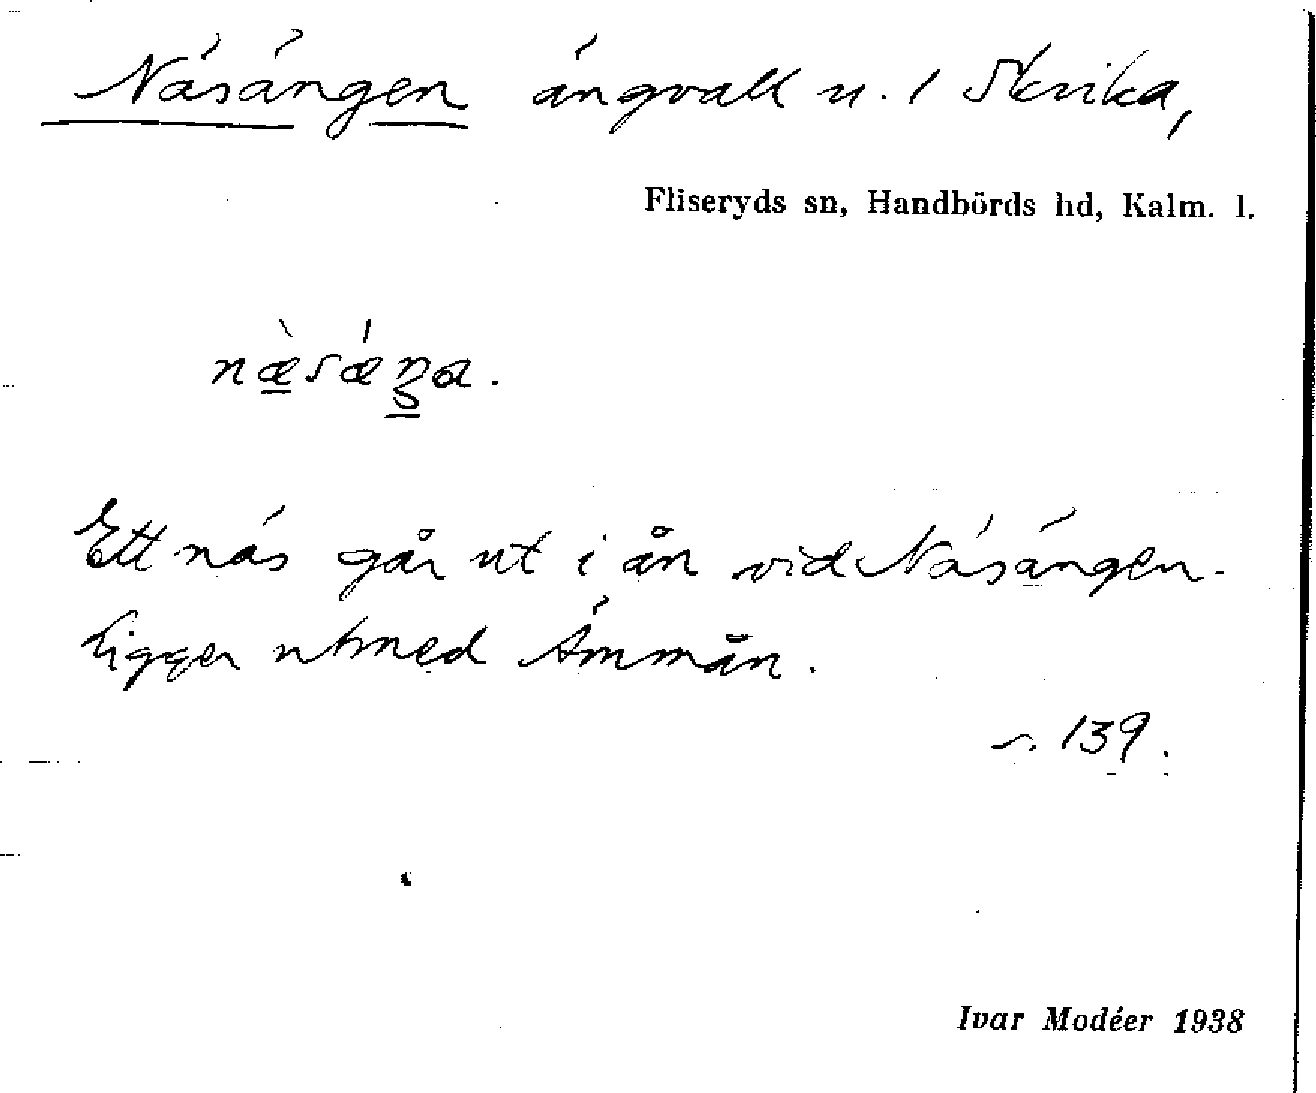 Näsängen ängvall u. 1 Skrika,
Fliseryds sn, Handbörds hd, Kalm. l.
næ̀sǽŋa.
Ett näs går ut i ån vid Näsängen.
Ligger utmed Ämmån.
s. 139.
Ivar Modéer 1938